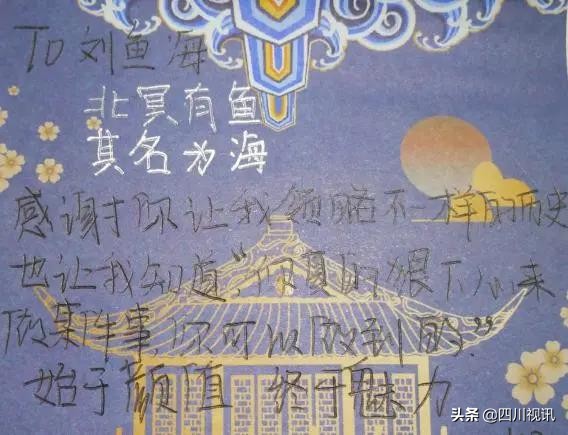 TO 刘鱼海
北冥有鱼
其名为海
感谢你让我领略不一样的历史
也让我知道“你真的狠下心来
做某件事，你可以做到的”
始于颜值 终于魅力
头条 @四川视讯